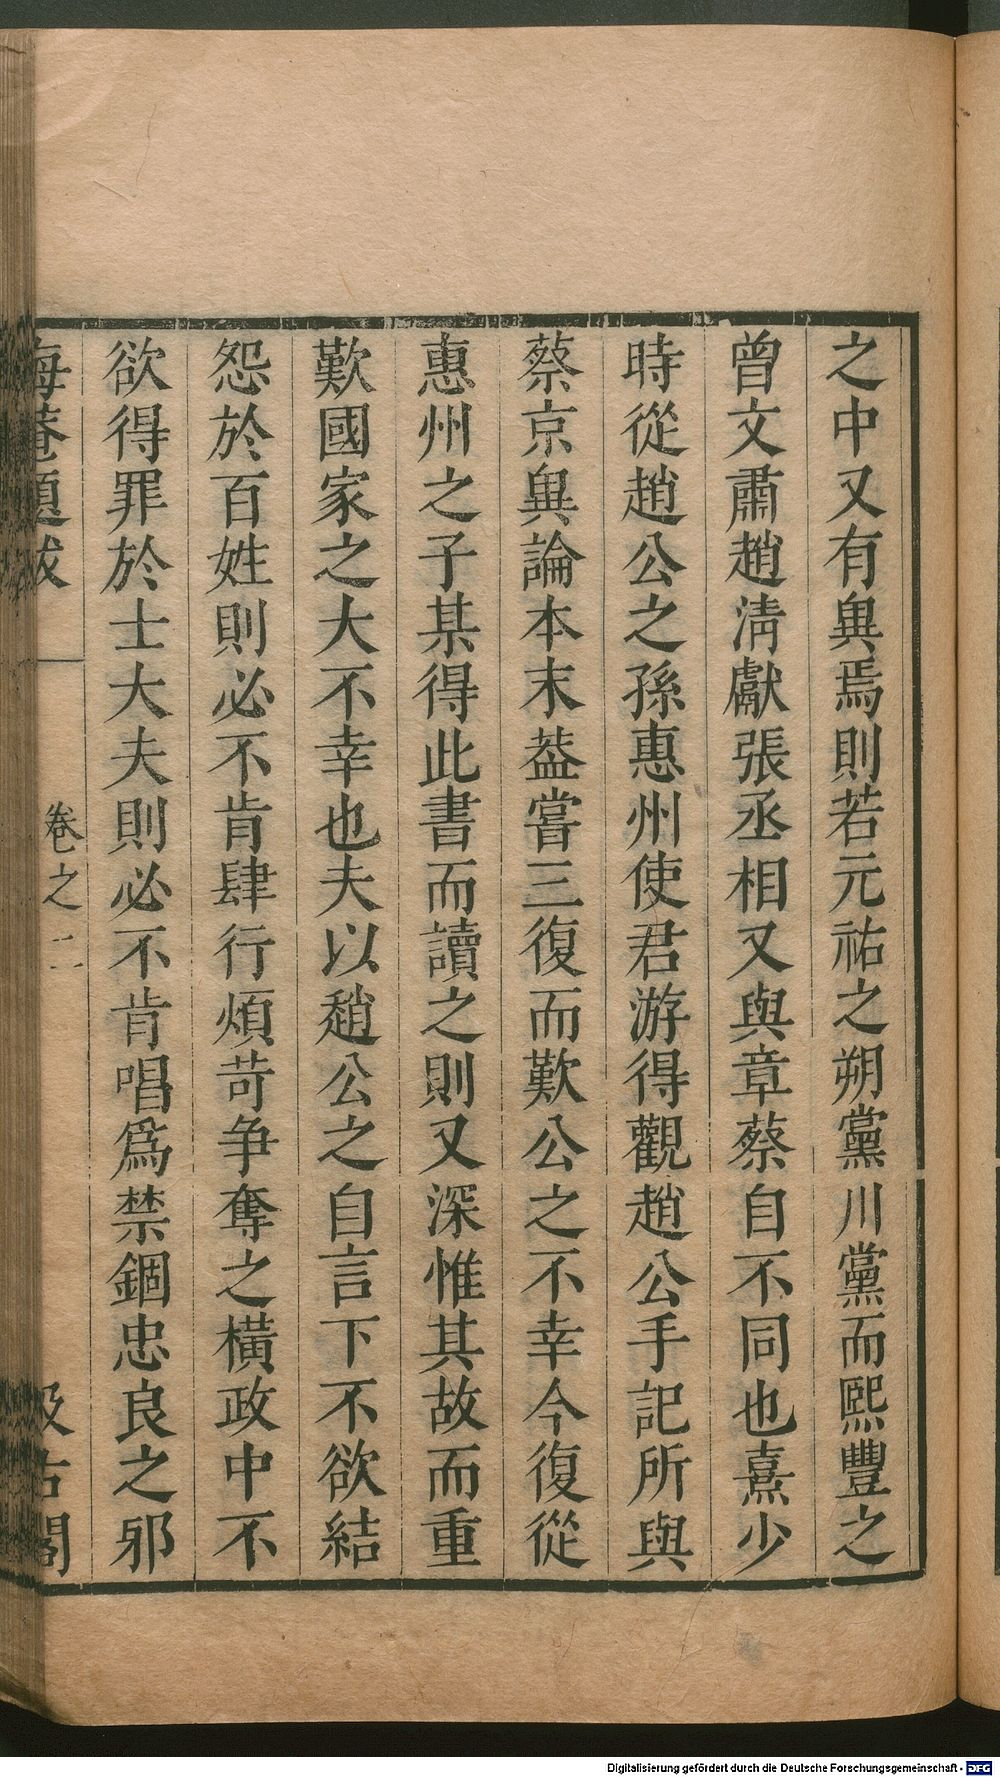 之中又有異焉則若元祐之朔黨川黨而熙豐之
曾文肅趙淸獻張丞相又與章蔡自不同也熹少
時從趙公之孫惠州使君游得觀趙公手記所與
蔡京異論本末葢嘗三復而歎公之不幸今復從
惠州之子某得此書而讀之則又深惟其故而重
歎國家之大不幸也夫以趙公之自言下不欲結
怨於百姓則必不肯肆行煩苛争奪之橫政中不
欲得罪於士大夫則必不肯唱爲禁錮忠良之邪
海菴題跋 卷之二 汲古閣
Digitalisierung gefördert durch die Deutsche Forschungsgemeinschaft - DFG